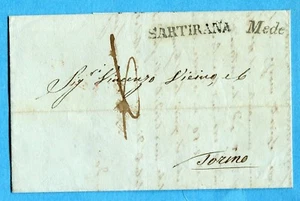 SARTIRANA Mede
Sig.ri Vincenzo Vicino e C
Torino